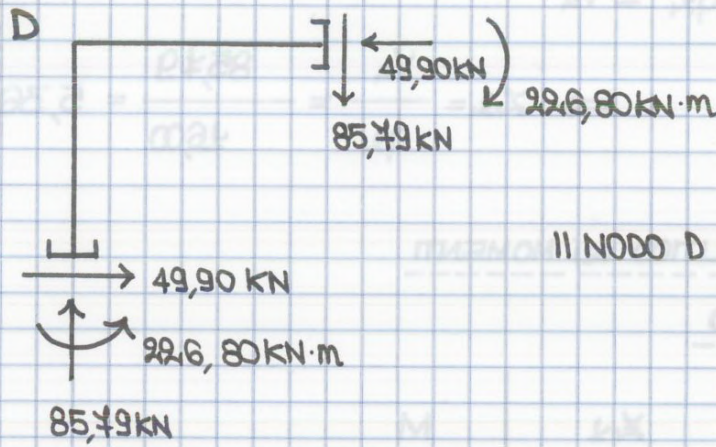 D
49,90 KN
226,80 KN·m
85,79 KN
II NODO D
49,90 KN
226,80 KN·m
85,79 KN